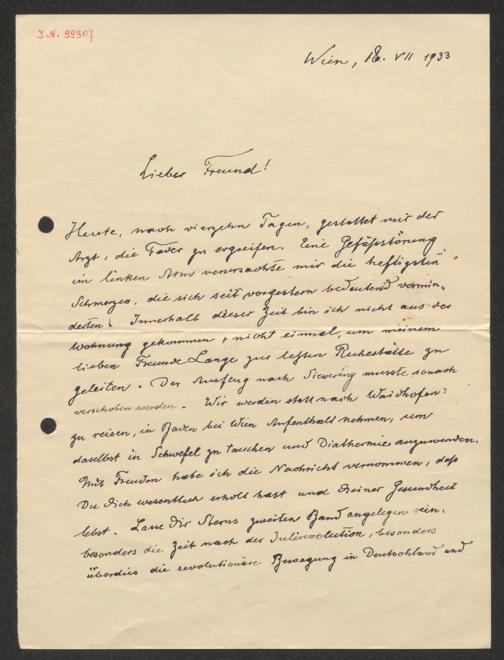 J.N. 99307
Wien, 18. VII 1933
Lieber Freund!
Heute, nach vierzehn Tagen, gestattet mir der
Arzt, die Feder zu ergreifen. Eine Gefäßstörung
im linken Arm verursachte mir die heftigsten
Schmerzen, die sich seit vorgestern bedeutend vermin-
derten. Innerhalb dieser Zeit bin ich nicht aus der
Wohnung gekommen, nicht einmal, um meinem
lieben Freunde Lange zur letzten Ruhestätte zu
geleiten. Der Ausflug nach Sievering musste sonach
verschoben werden. Wir werden statt nach Waidhofen
zu reisen, in Baden bei Wien Aufenthalt nehmen, um
daselbst in Schwefel zu tauchen und Diathermie anzuwenden.
Mit Freuden habe ich die Nachricht vernommen, daß
Du Dich wesentlich erholt hast und Deiner Gesundheit
lebst. Lasse Dir Sterns zweiten Band angelegen sein,
besonders die Zeit nach der Julirevolution, besonders
überdies die revolutionäre Bewegung in Deutschland und